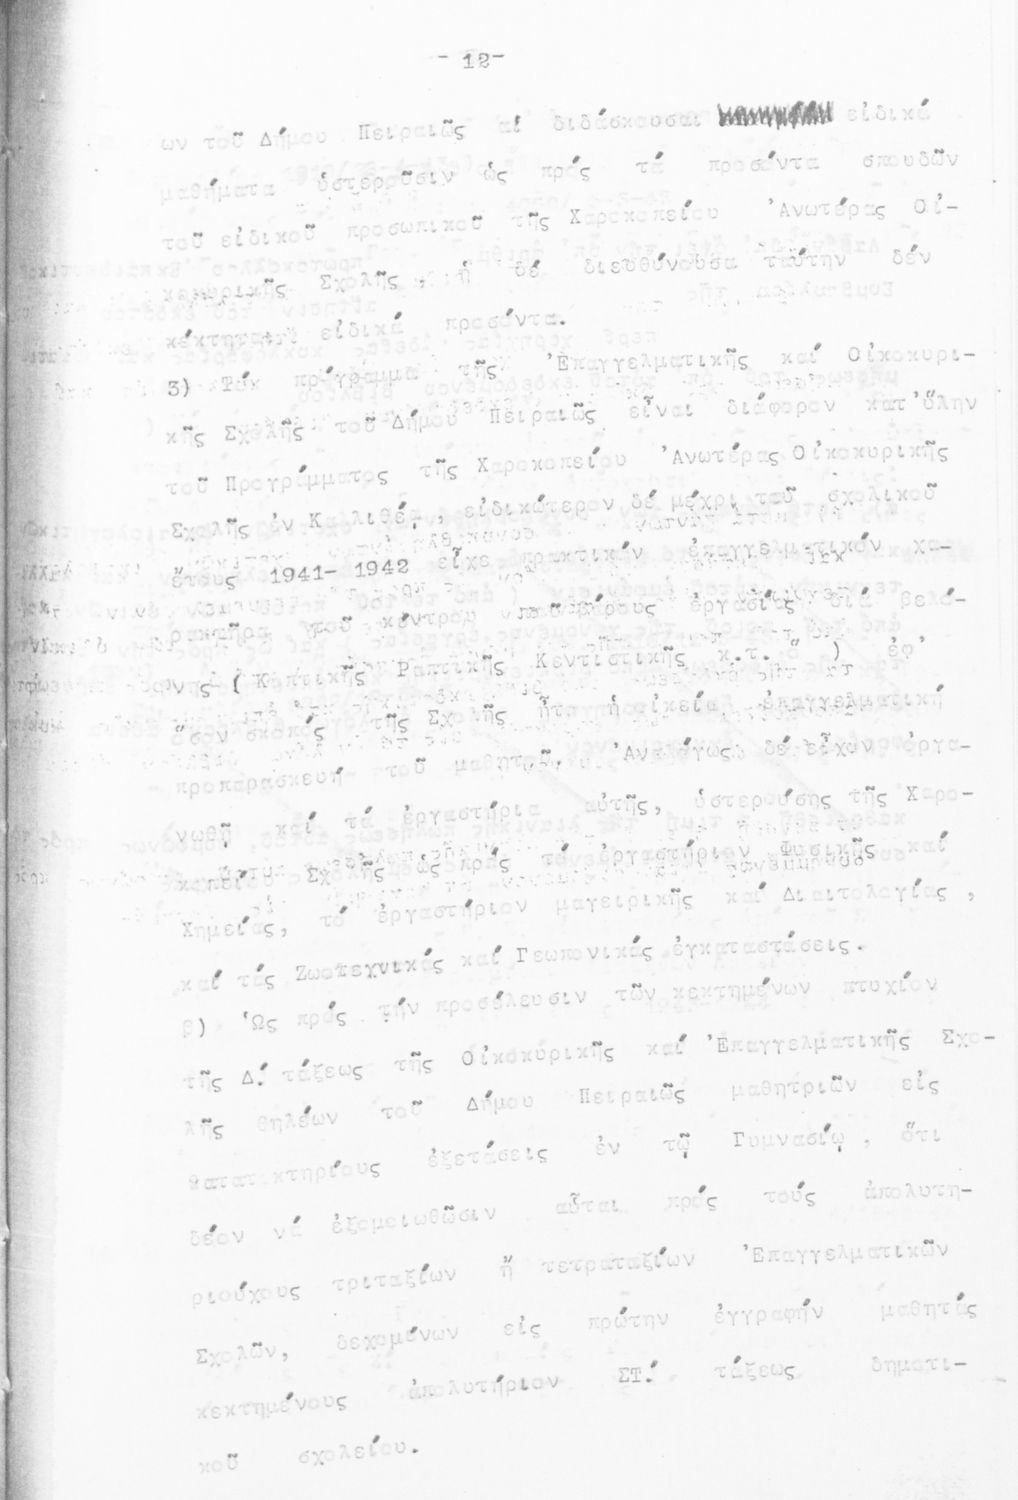 - 12-
ων τοῦ Δήμου Πειραιῶς αἱ διδάσκουσαι εἰδικά
μαθήματα ὑστεροῦσιν ὡς πρός τά προσόντα σπουδῶν
τοῦ εἰδικοῦ προσωπικοῦ τῆς Χαροκοπείου Ἀνωτέρας Οἰ-
κοκυρικῆς Σχολῆς, ἡ δέ διευθύνουσα ταύτην δέν
κέκτηται εἰδικά προσόντα.
3) Τόν πρόγραμμα τῆς Ἐπαγγελματικῆς καί Οἰκοκυρι-
κῆς Σχολῆς τοῦ Δήμου Πειραιῶς εἶναι διάφορον κατ' ὅλην
τοῦ Προγράμματος τῆς Χαροκοπείου Ἀνωτέρας Οἰκοκυρικῆς
Σχολῆς ἐν Καλλιθέᾳ, εἰδικώτερον δέ μέχρι τοῦ σχολικοῦ
ἔτους 1941- 1942 εἶχε πρακτικόν ἐπαγγελματικόν χα-
ρακτῆρα τοῦ κέντρου τοῦ βάρους ἐργασίας διά βελό-
νης ( Κοπτικῆς Ραπτικῆς Κεντιστικῆς κ.τ.ὅ ) ἐφ'
ὅσον σκοπός τῆς Σχολῆς ἦτο ἡ οἰκεία ἐπαγγελματική
προπαρασκευή τοῦ μαθητοῦ. Ἀναλόγως δέ εἶχον ὀργα-
νωθῆ καί τά ἐργαστήρια αὐτῆς, ὑστερούσης τῆς Χαρο-
κοπείου Σχολῆς ὡς πρός τό ἐργαστήριον Φυσικῆς καί
Χημείας, τό ἐργαστήριον μαγειρικῆς καί Διαιτολογίας,
καί τάς Ζωοτεχνικάς καί Γεωπονικάς ἐγκαταστάσεις.
β) Ὡς πρός τήν προσέλευσιν τῶν κεκτημένων πτυχίον
τῆς Δ. τάξεως τῆς Οἰκοκυρικῆς καί Ἐπαγγελματικῆς Σχο-
λῆς θηλέων τοῦ Δήμου Πειραιῶς μαθητριῶν εἰς
κατατακτηρίους ἐξετάσεις ἐν τῷ Γυμνασίῳ, ὅτι
δέον νά ἐξομοιωθῶσιν αὗται πρός τούς ἀπολυτη-
ριούχους τριταξίων ἤ τετραταξίων Ἐπαγγελματικῶν
Σχολῶν, δεχομένων εἰς πρώτην ἐγγραφήν μαθητάς
κεκτημένους ἀπολυτήριον ΣΤ. τάξεως δημοτι-
κοῦ σχολείου.